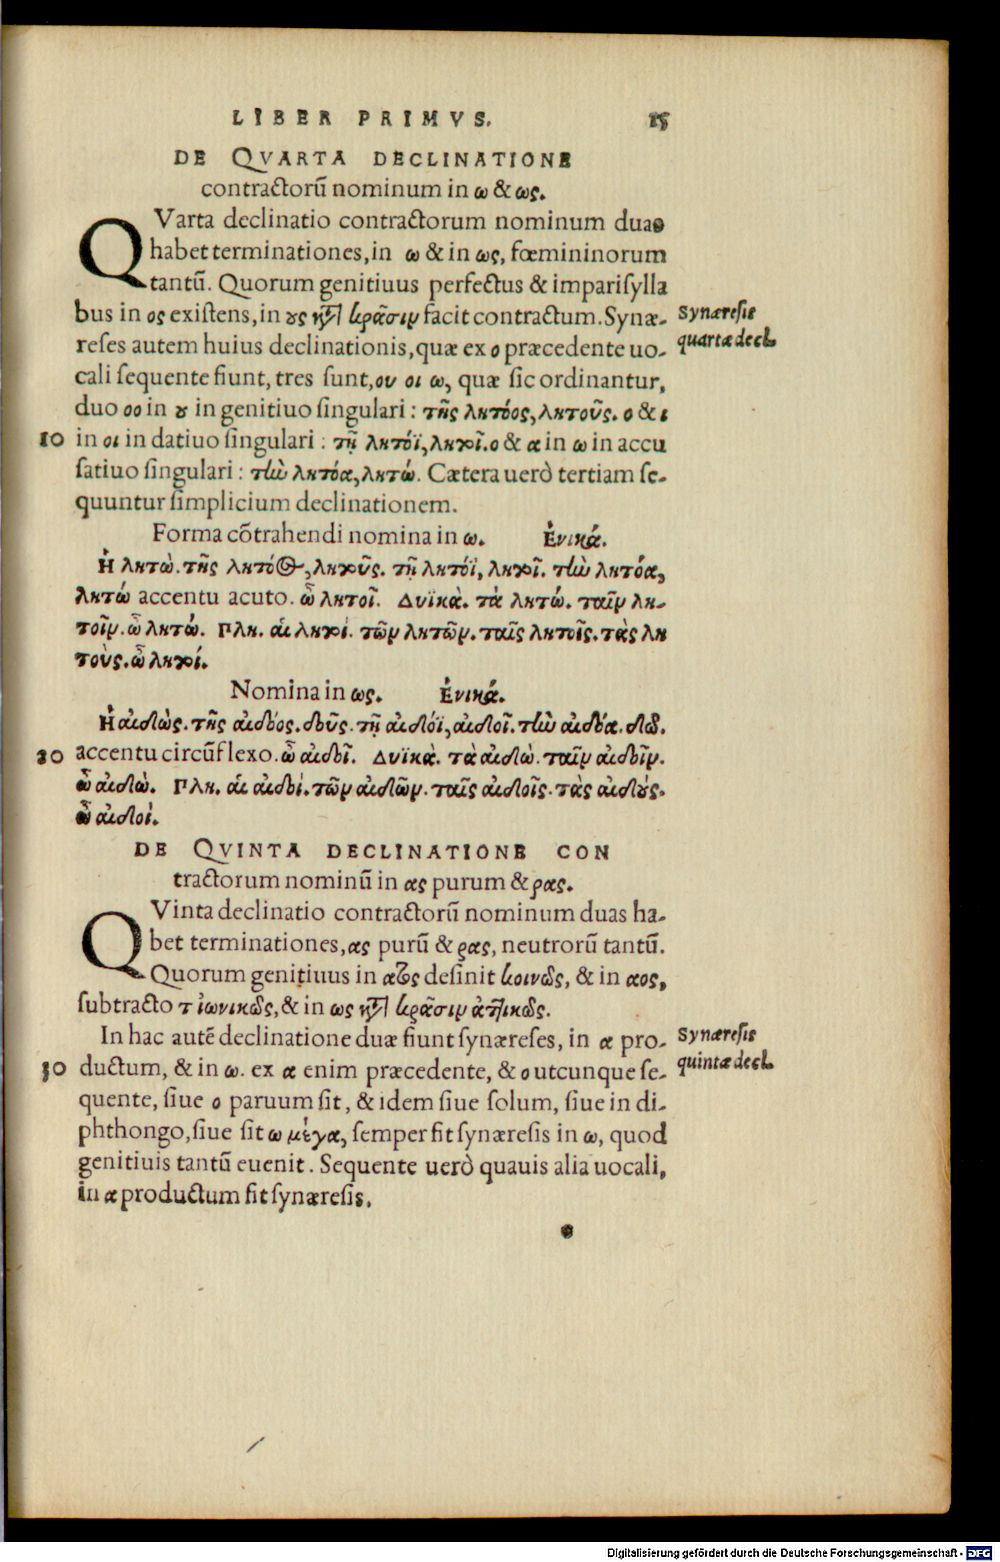 LIBER PRIMVS. 15
DE QVARTA DECLINATIONE
contractorũ nominum in ω & ως.
QVarta declinatio contractorum nominum duas
habet terminationes, in ω & in ως, fœmininorum
tantũ. Quorum genitiuus perfectus & imparisylla
bus in ος existens, in ȣς κỲ κρᾶσιν facit contractum. Synæ-
Synæresis
reses autem huius declinationis, quæ ex ο præcedente uo-
quartæ decl.
cali sequente fiunt, tres sunt, ου οι ω, quæ sic ordinantur,
duo οο in ȣ in genitiuo singulari: τῆς λητόος, λητοῦς. ο & ι
10 in οι in datiuo singulari: τῇ λητόϊ, λητοῖ. ο & α in ω in accu
satiuo singulari: τὴν λητόα, λητώ. Cætera uerò tertiam se-
quuntur simplicium declinationem.
Forma cõtrahendi nomina in ω. Ἑνικά.
Ἡ λητὼ. τῆς λητόος, λητοῦς. τῇ λητόϊ, λητοῖ. τὴν λητόα,
λητώ accentu acuto. ὦ λητοῖ. Δυϊκὰ. τὰ λητώ. ταῖν λη-
τοῖν. ὦ λητώ. Πλη. αἱ λητοί. τῶν λητῶν. ταῖς λητοῖς. τὰς λη
τοὺς. ὦ λητοί.
Nomina in ως. Ἑνικά.
Ἡ αἰδὼς. τῆς αἰδόος. δοῦς. τῇ αἰδόϊ, αἰδοῖ. τὴν αἰδόα. δῶ.
20 accentu circũflexo. ὦ αἰδοῖ. Δυϊκὰ. τὰ αἰδώ. ταῖν αἰδοῖν.
ὦ αἰδώ. Πλη. αἱ αἰδοί. τῶν αἰδῶν. ταῖς αἰδοῖς. τὰς αἰδȣ́ς.
ὦ αἰδοί.
DE QVINTA DECLINATIONE CON
tractorum nominũ in ας purum & ρας.
QVinta declinatio contractorũ nominum duas ha-
bet terminationes, ας purũ & ρας, neutrorũ tantũ.
Quorum genitiuus in ατος desinit κοινῶς, & in αος,
subtracto τ ἰωνικῶς, & in ως κỲ κρᾶσιν ἀττικῶς.
In hac autẽ declinatione duæ fiunt synæreses, in α pro-
Synæresis
30 ductum, & in ω. ex α enim præcedente, & ο utcunque se-
quintæ decl.
quente, siue ο paruum sit, & idem siue solum, siue in di-
phthongo, siue sit ω μέγα, semper fit synæresis in ω, quod
genitiuis tantũ euenit. Sequente uerò quauis alia uocali,
in α productum fit synæresis.
Digitalisierung gefördert durch die Deutsche Forschungsgemeinschaft - DFG